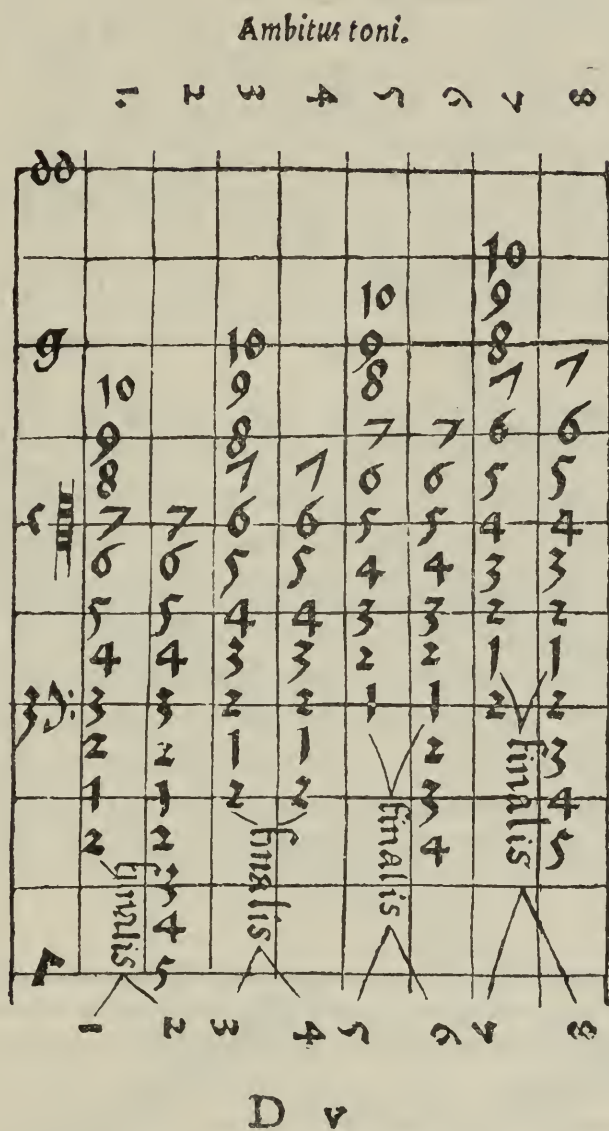 Ambitus toni.
1. 2 3 4 5 6 7 8
dd
10
10 9
g 10 9 8
10 9 8 7 7
9 8 7 7 6 6
8 7 7 6 6 5 5
7 7 6 6 5 5 4 4
6 6 5 5 4 4 3 3
5 5 4 4 3 3 2 2
4 4 3 3 2 2 1 1
3 3 2 2 1 1 2 2
2 2 1 1 2 3
1 1 2 2 3 4
2 2 4 5
3
4
5
finalis finalis finalis finalis
Γ
1 2 3 4 5 6 7 8
D v